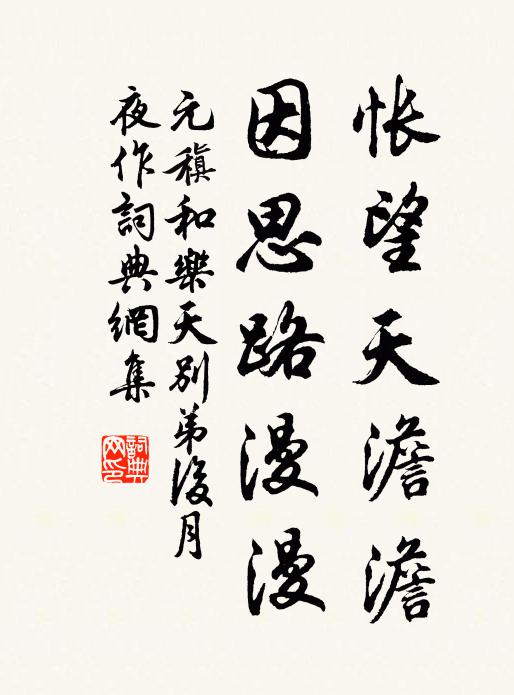 悵望天澹澹
因思路漫漫
元稹和樂天別弟後月
夜作詞典網集
詞典網印